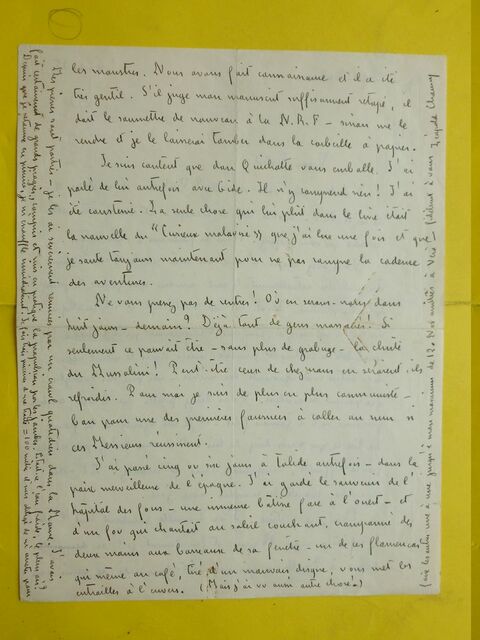 les monstres. Nous avons fait connaissance et il a été
très gentil. S'il juge mon manuscrit suffisamment retapé, il
doit le soumettre de nouveau à la N.R.F – sinon me le
rendre et je le laisserai tomber dans la corbeille à papier.
Je suis content que Don Quichotte vous emballe. J'ai
parlé de lui autrefois avec Gide. Il n'y comprend rien ! J'ai
été consterné. La seule chose qui lui plût dans le livre était
la nouvelle du "Curieux malavisé" que j'ai lue une fois et que
je saute toujours maintenant pour ne pas rompre la cadence
des aventures.
Ne vous pressez pas de rentrer ! Où en serons-nous dans
huit jours – demain ? Déjà tant de gens massacrés ! Si
seulement ce pouvait être – sans plus de grabuge – la chute
du Mussolini ! Peut-être ceux de chez nous en seraient-ils
refroidis. Pour moi je suis de plus en plus communiste –
bon pour une des premières fournées à coller au mur si
ces Messieurs réussissent.
J'ai passé cinq ou six jours à Tolède autrefois – dans la
paix merveilleuse de l'époque. J'ai gardé le souvenir de l'
hôpital des fous – une immense bâtisse face à l'ouest – et
d'un fou qui chantait au soleil couchant, cramponné des
deux mains aux barreaux de sa fenêtre – un de ces flamencos
qui même au café, tiré d'un mauvais disque, vous met les
entrailles à l'envers. (Mais j'ai vu aussi autre chose.)
Mes pierres sont parties – je les ai sérieusement remuées par un crawl quotidien dans la Marne. J'avais
fait certainement de grands progrès, compris et mis en pratique la propulsion par les jambes.
Depuis que je retourne en piscine, je m'essouffle immédiatement.